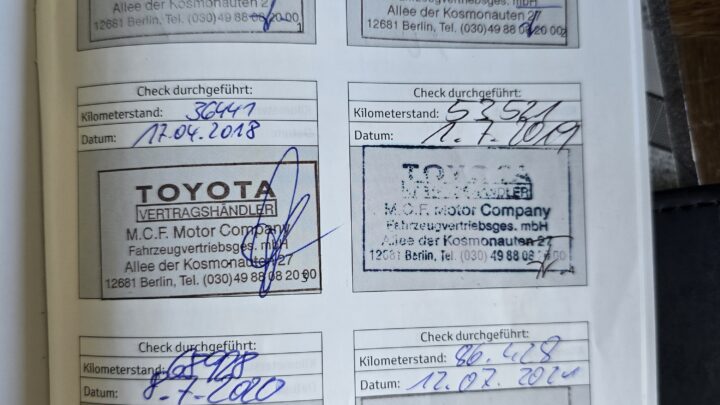 Fahrzeugvertriebsges. mbH
Allee der Kosmonauten 27
12681 Berlin, Tel. (030) 49 88 08 20 00
1
Fahrzeugvertriebsges. mbH
Allee der Kosmonauten
12681 Berlin, Tel. (030) 49 88 08 20 00
2
Check durchgeführt:
Kilometerstand: 36441
Datum: 17.04.2018
TOYOTA
VERTRAGSHÄNDLER
M.C.F. Motor Company
Fahrzeugvertriebsges. mbH
Allee der Kosmonauten 27
12681 Berlin, Tel. (030) 49 88 08 20 00
3
Check durchgeführt:
Kilometerstand: 53521
Datum: 1.7.2019
TOYOTA
VERTRAGSHÄNDLER
M.C.F. Motor Company
Fahrzeugvertriebsges. mbH
Allee der Kosmonauten 27
12681 Berlin, Tel. (030) 49 88 08 20 00
4
Check durchgeführt:
Kilometerstand: 68928
Datum: 8.7.2020
Check durchgeführt:
Kilometerstand: 86.428
Datum: 12.07.2021